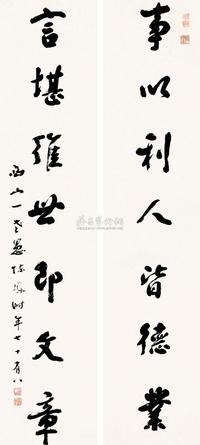 事以利人皆德業
言堪維世即文章
西山一老愚陳時年七十有八